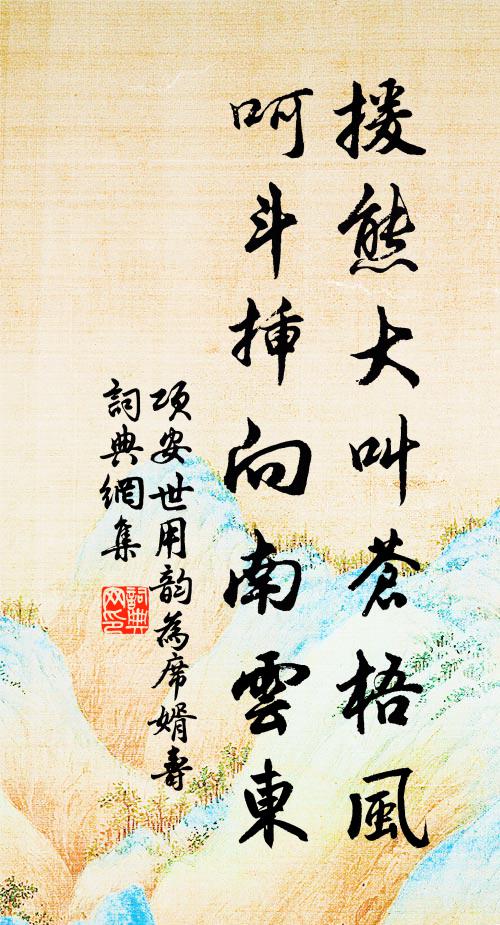 援熊大叫蒼梧風
呵斗揷向南雲東
項安世用韵為席婿壽
詞典網集
詞典網印